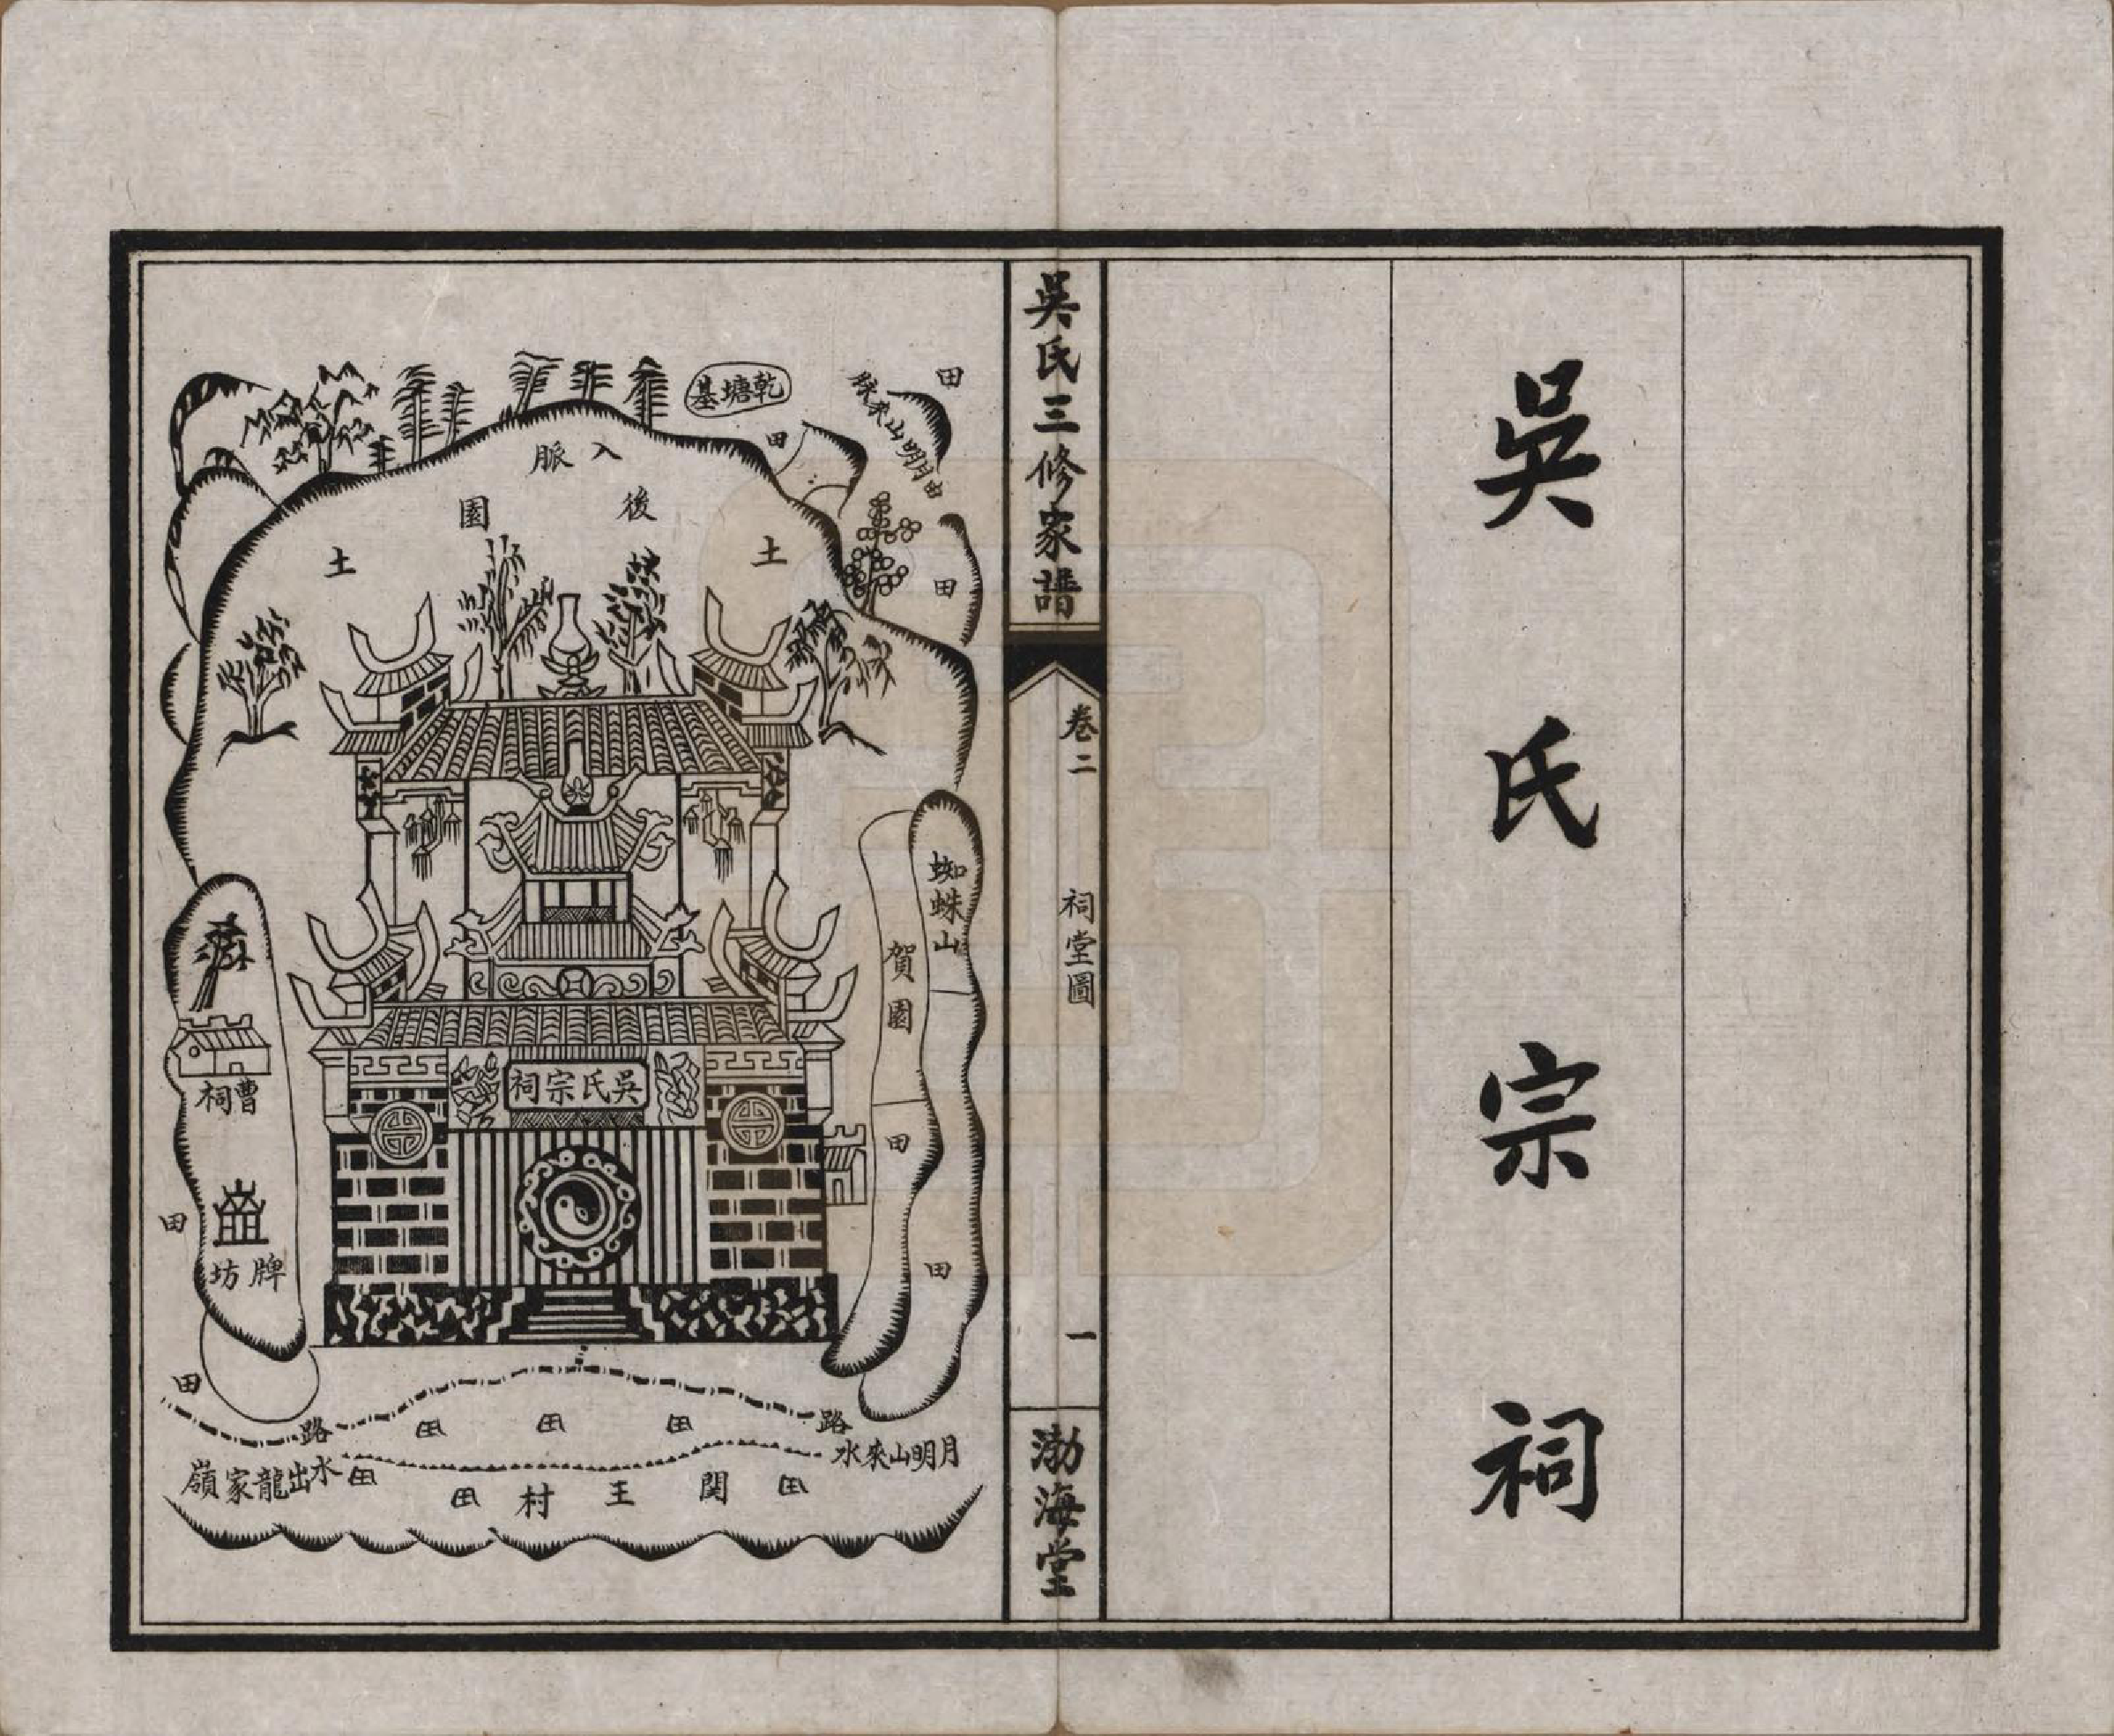 吳氏宗祠
吳氏三修家譜
卷二
祠堂圖
一
渤海堂
田
脉來山明月由
乾塘基
田
入脈
後園
土
土
田
蜘蛛山
賀園
田
田
吳氏宗祠
曹祠
牌坊
田
田
路
田
田
田
路
月明山來水
水出龍家嶺
田
田
関王村
田